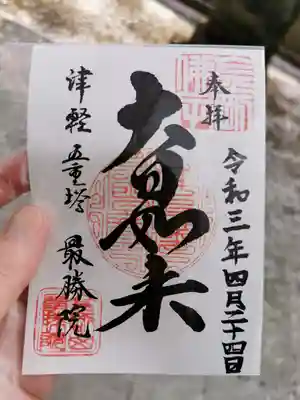 奉拝
令和三年四月二十四日
大日如来
津軽五重塔
最勝院